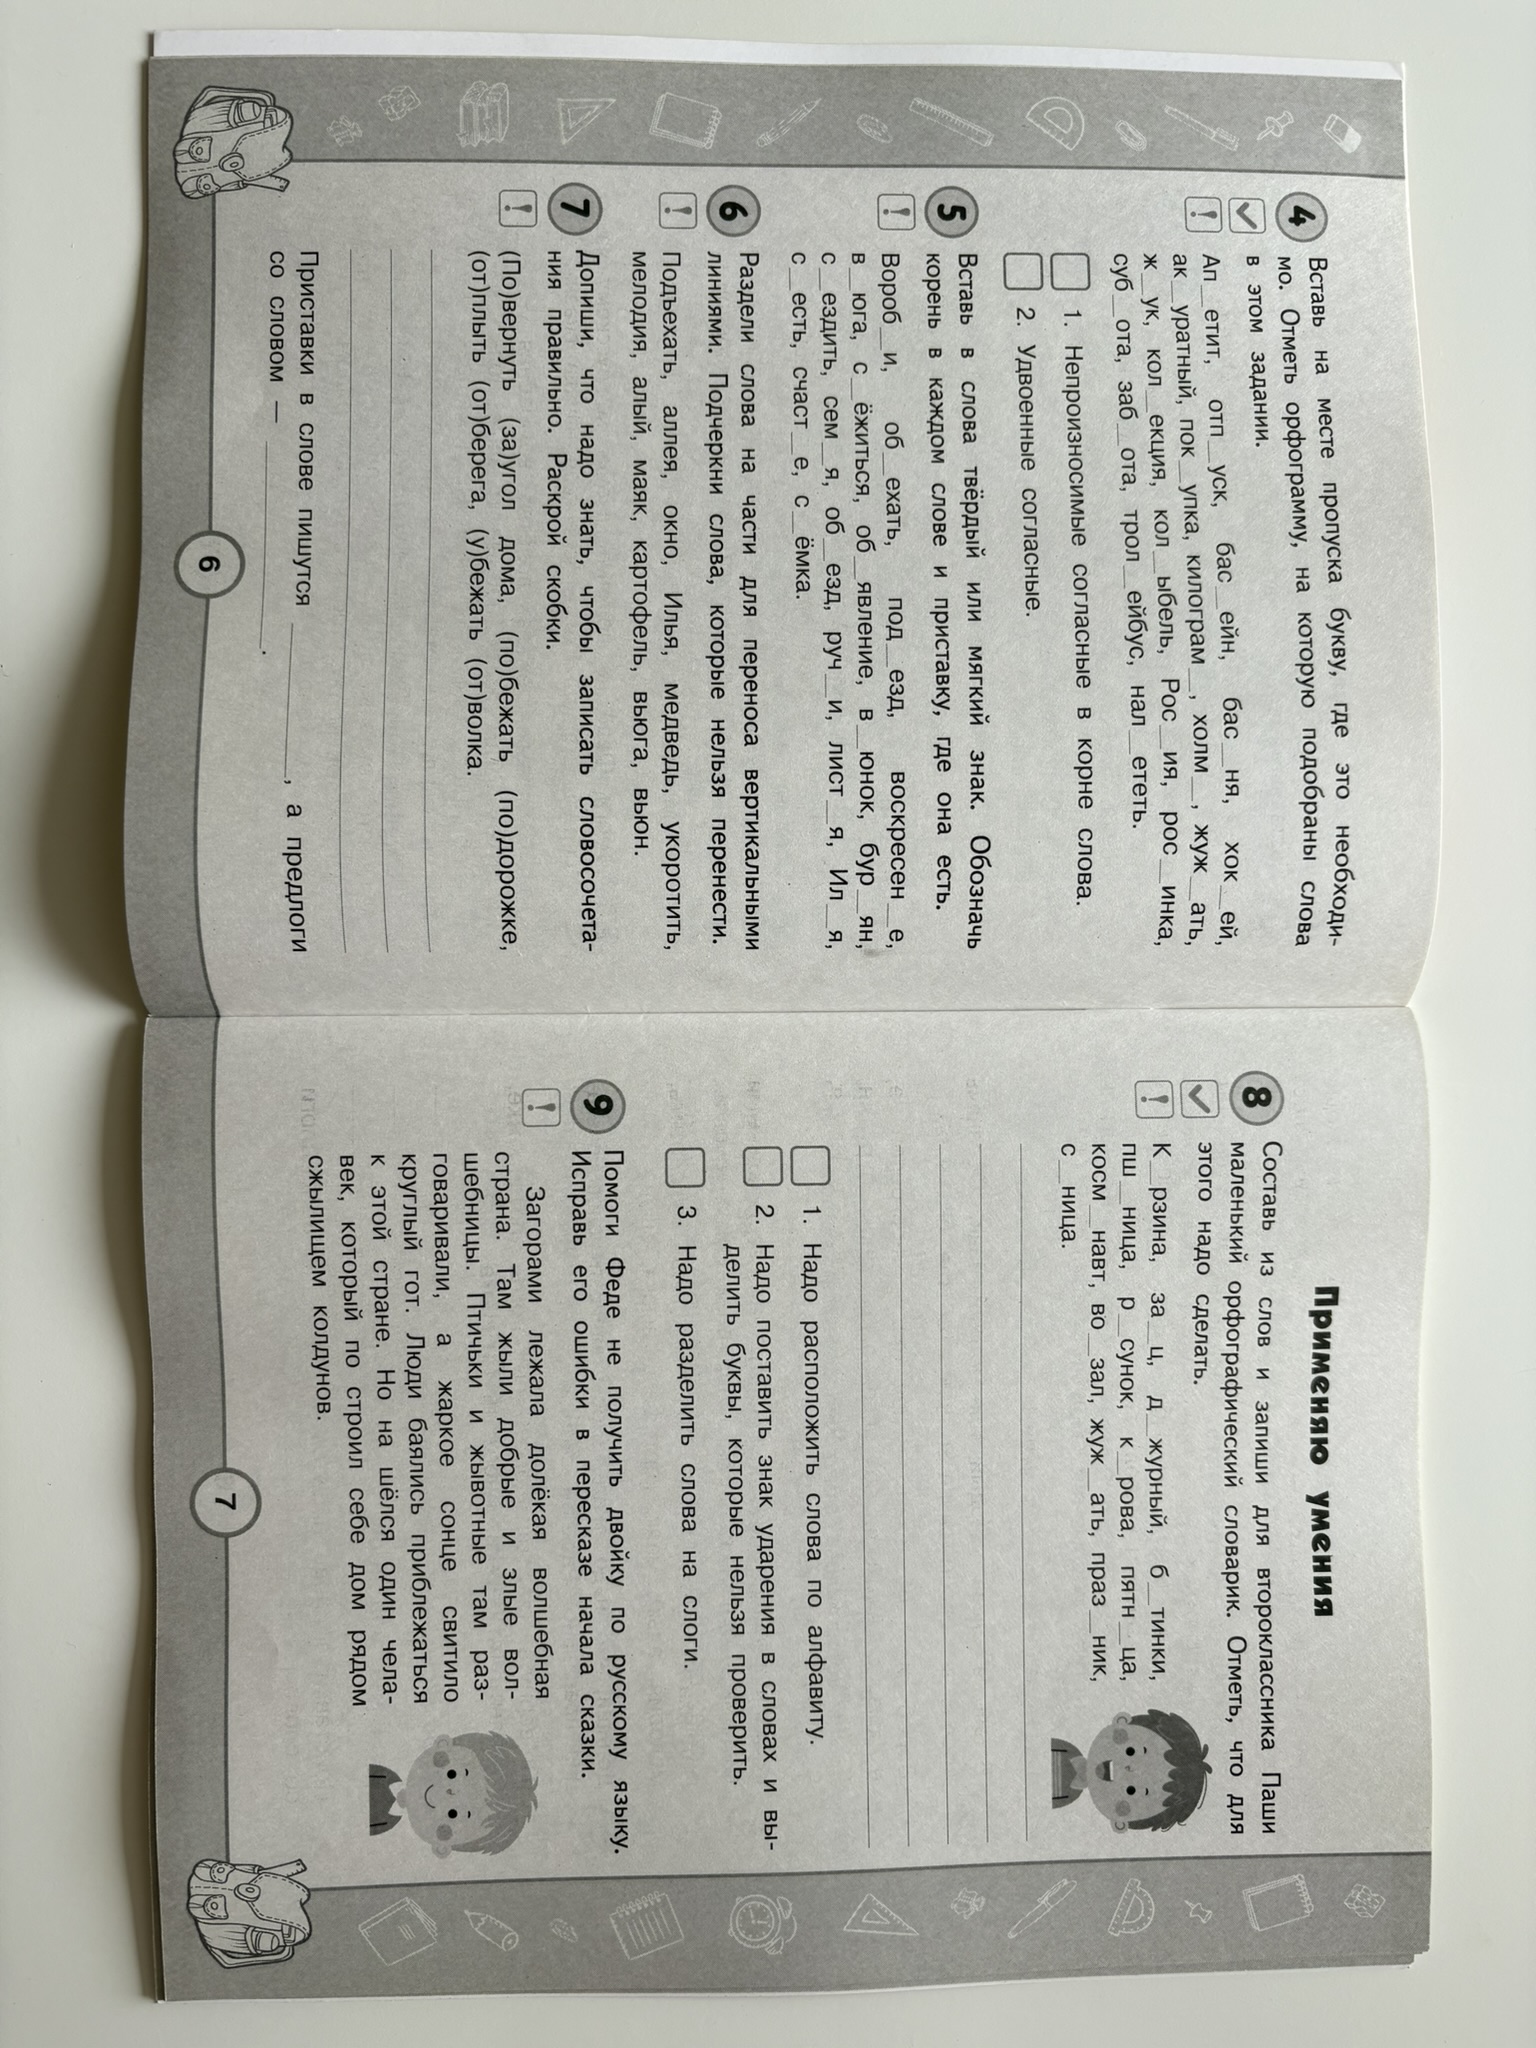 4 Вставь на месте пропуска букву, где это необходи-
мо. Отметь орфограмму, на которую подобраны слова
в этом задании.
! Ап__етит, отп__уск, бас__ейн, бас__ня, хок__ей,
ак__уратный, пок__упка, килограм__, холм__, жуж__ать,
ж__ук, кол__екция, кол__ыбель, Рос__ия, рос__инка,
суб__ота, заб__ота, трол__ейбус, нал__ететь.
1. Непроизносимые согласные в корне слова.
2. Удвоенные согласные.
5 Вставь в слова твёрдый или мягкий знак. Обозначь
корень в каждом слове и приставку, где она есть.
! Вороб__и, об__ехать, под__езд, воскресен__е,
в__юга, с__ёжиться, об__явление, в__юнок, бур__ян,
с__ездить, сем__я, об__езд, руч__и, лист__я, Ил__я,
с__есть, счаст__е, с__ёмка.
6 Раздели слова на части для переноса вертикальными
линиями. Подчеркни слова, которые нельзя перенести.
! Подъехать, аллея, окно, Илья, медведь, укоротить,
мелодия, алый, маяк, картофель, вьюга, вьюн.
7 Допиши, что надо знать, чтобы записать словосочета-
ния правильно. Раскрой скобки.
! (По)вернуть (за)угол дома, (по)бежать (по)дорожке,
(от)плыть (от)берега, (у)бежать (от)волка.
Приставки в слове пишутся __________, а предлоги
со словом — __________.
6
Применяю умения
8 Составь из слов и запиши для второклассника Паши
маленький орфографический словарик. Отметь, что для
этого надо сделать.
! К__рзина, за__ц, д__журный, б__тинки,
пш__ница, р__сунок, к__рова, пятн__ца,
косм__навт, во__зал, жуж__ать, праз__ник,
с__ница.
1. Надо расположить слова по алфавиту.
2. Надо поставить знак ударения в словах и вы-
делить буквы, которые нельзя проверить.
3. Надо разделить слова на слоги.
9 Помоги Феде не получить двойку по русскому языку.
Исправь его ошибки в пересказе начала сказки.
! Загорами лежала долёкая волшебная
страна. Там жыли добрые и злые вол-
шебницы. Птичьки и жывотные там раз-
говаривали, а жаркое сонце свитило
круглый гот. Люди баялись приблежаться
к этой стране. Но на шёлся один чела-
век, который по строил себе дом рядом
сжылищем колдунов.
7